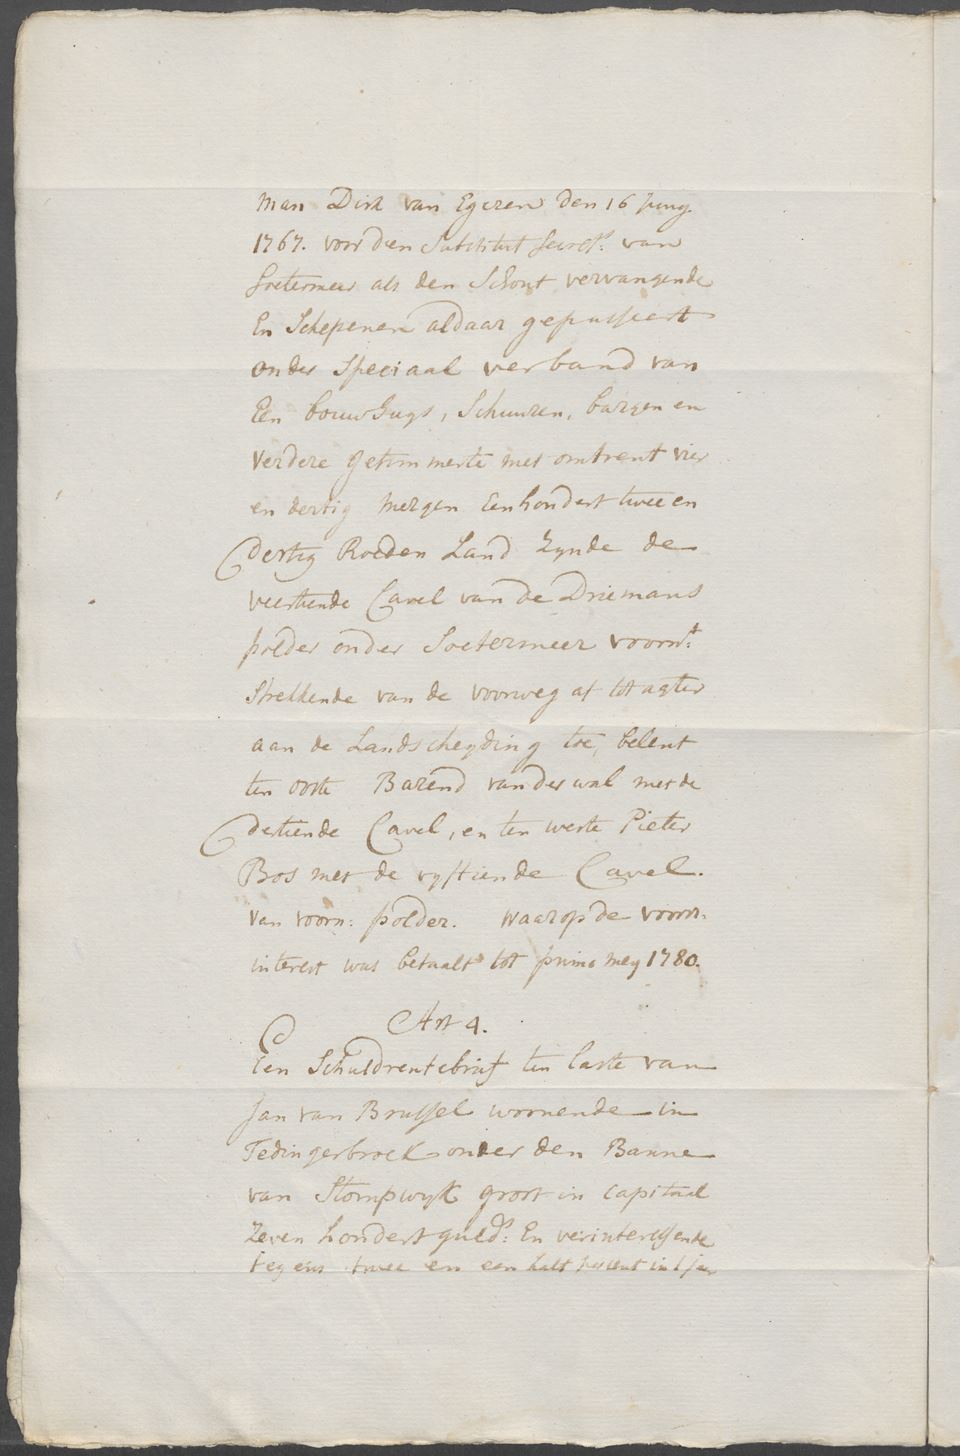 man Dirk van Egeren den 16 Juny
1767. voor den Substitut Secrets. van
Soetermeer als den Schout vervangende
En Schepenen aldaar gepasseert
onder Speciaal verband van
Een bouwhuys, Schuuren, bargen en
verdere getimmerte met omtrent vier
en dertig mergen Eenhondert twee en
dertig Roeden Land Zynde de
veertiende Cavel van de Driemans
polder onder Soetermeer voornt.
Strekkende van de voorweg af tot agter
aan de Landscheyding toe, belent
ten oosten Barend van der wal met de
dertiende Cavel, en ten weste Pieter
Bos met de vyftiende Cavel.
van voorn: polder. waarop de voorn:
interest was betaalt tot primo mey 1780.
Art 4.
Een Schuldrentebrief ten laste van
Jan van Brussel woonende in
Tedingerbroek onder den Banne
van Stompwyk groot in capitaal
Zeven hondert guld:s En verinteressende
tegens twee en een half percent in 't jaar